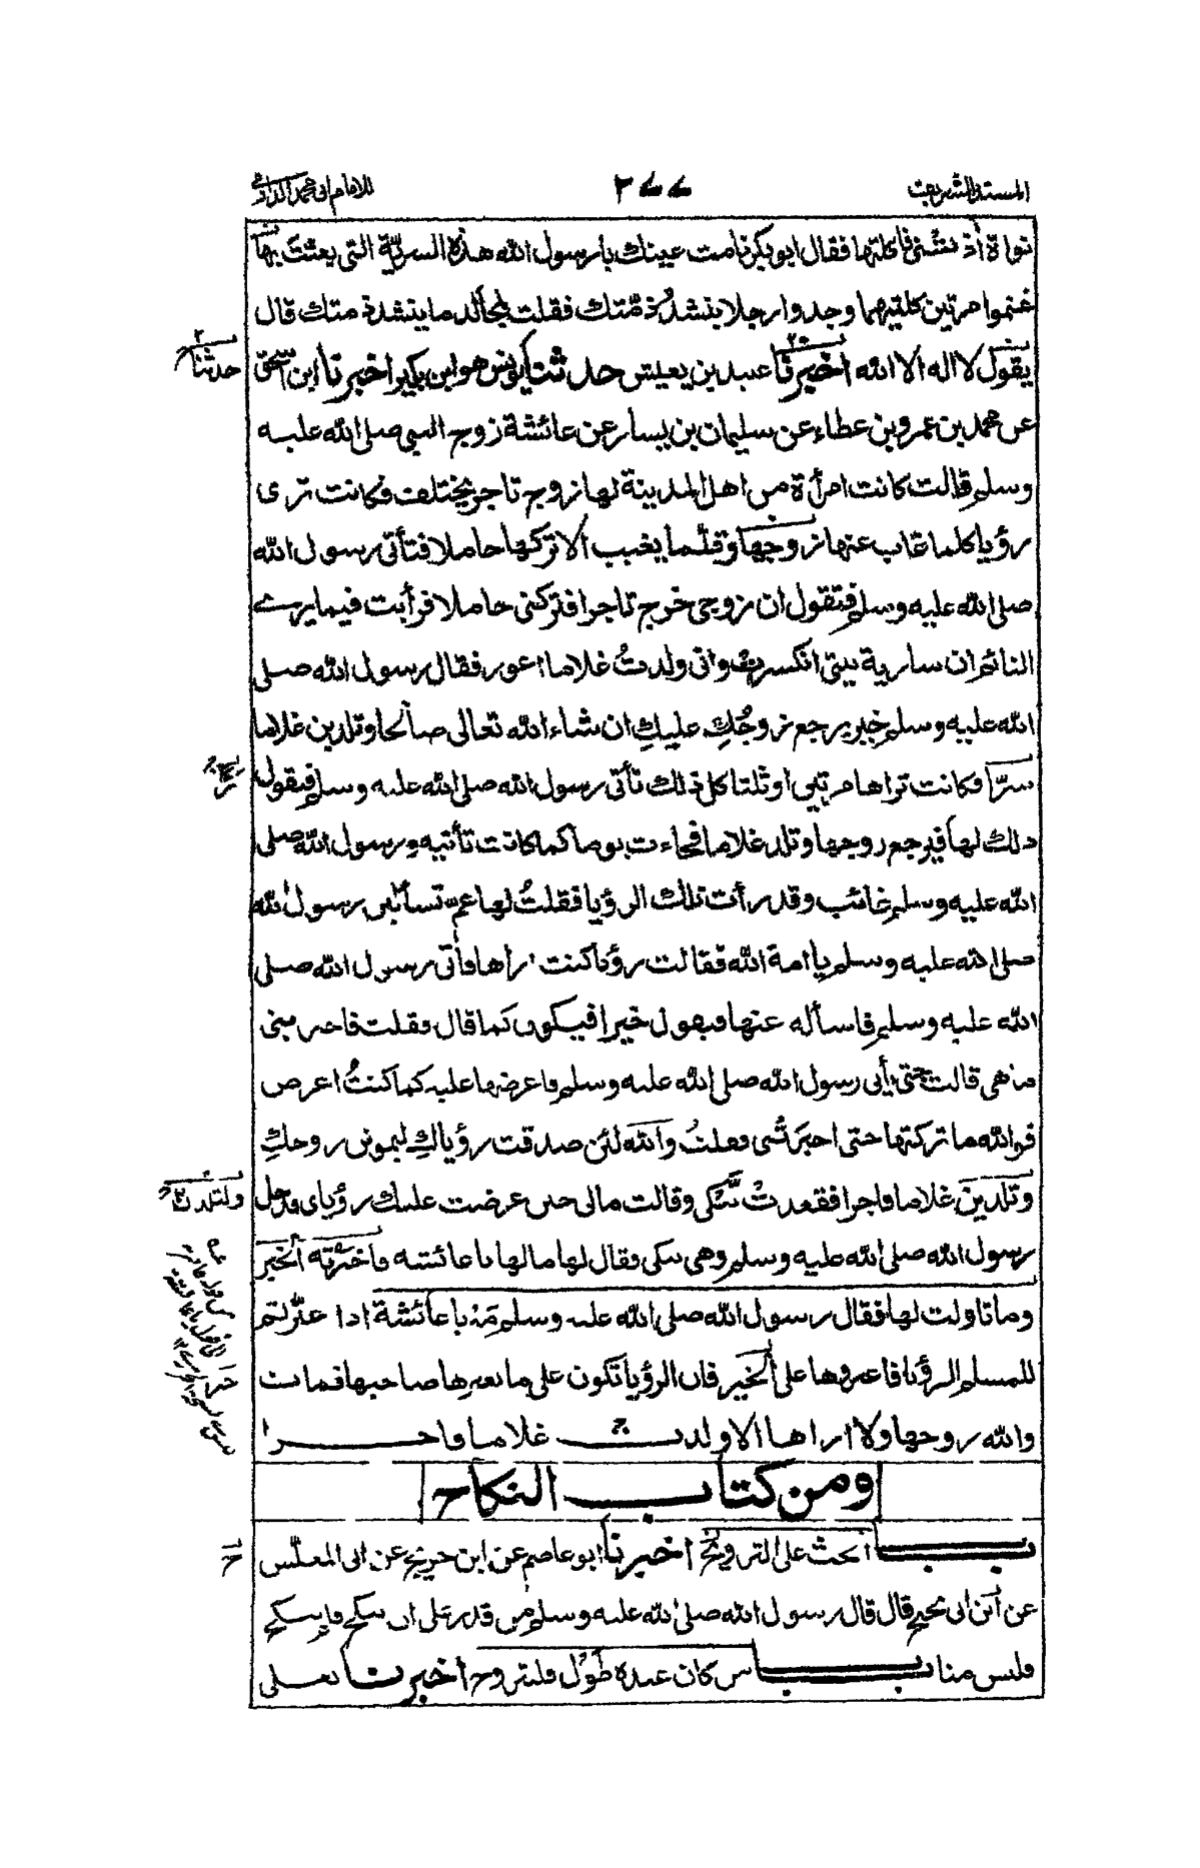 المسند الشريف ٢٧٧ للامام ابى محمد الدارمى
نواة أذ نفشنى فاكلتها فقال ابو بكر نامت عينك يارسول الله هذه السريّة التى بعثتَ بها
غنموا مرتين كلتيهما وجدوا رجلا ينشد ذمّتك فقلت لمجالد ما ينشد ذمتك قال
يقول لا اله الا الله اخبرنا عبيد بن يعيش حدثنا يونس هو ابن بكير اخبرنا ابن اسحٰق
حدثنا
عن محمد بن عمرو بن عطاء عن سليمان بن يسار عن عائشة زوج النبى صلى الله عليه
وسلم قالت كانت امرأة من اهل المدينة لها زوج تاجر يختلف فكانت ترى
رؤيا كلما غاب عنها زوجها وقلّما يغيب الا تركها حاملا فتأتى رسول الله
صلى الله عليه وسلم فتقول ان زوجى خرج تاجرا فتركنى حاملا فرأيت فيما يرى
النائم ان سارية بيتى انكسرت وانى ولدتُ غلاما اعور فقال رسول الله صلى
الله عليه وسلم خير يرجع زوجُكِ عليكِ ان شاء الله تعالى صالحا وتلدين غلاما
برّا فكانت تراها مرتين او ثلثا كل ذلك تأتى رسول الله صلى الله عليه وسلم فيقول
ذلك لها فيرجع زوجها وتلد غلاما فجاءت يوما كما كانت تأتيه ورسول الله صلى
الله عليه وسلم غائب وقد رأت تلك الرؤيا فقلتُ لها عمّ تسألين رسول الله
صلى الله عليه وسلم يا امة الله فقالت رؤيا كنت اراها فأتى رسول الله صلى
الله عليه وسلم فاسأله عنها فيقول خيرا فيكون كما قال فقلت فاخبرينى
ما هى قالت حتى يأتى رسول الله صلى الله عليه وسلم فاعرضها عليه كما كنتُ اعرض
فوالله ما تركتها حتى اخبرَتْنى فقلتُ والله لئن صدقت رؤياكِ ليموتن زوجكِ
وتلدينَ غلاما فاجرا فقعدتْ تبْكى وقالت مالى حين عرضت عليك رؤياى فدخل
ولتلدن
رسول الله صلى الله عليه وسلم وهى تبكى فقال لها مالها يا عائشة فاخبرته الخبر
وما تاولت لها فقال رسول الله صلى الله عليه وسلم مَهْ يا عائشة اذا عبّرتم
للمسلم الرؤيا فاعبروها على الخير فان الرؤيا تكون على ما يعبرها صاحبها فمات
والله زوجها ولا اراها الا ولدت غلاما فاجرا
ومن كتاب النكاح
باب الحث على التزويج اخبرنا ابو عاصم عن ابن جريج عن ابى المغلّس
عن ابن ابى نجيح قال قال رسول الله صلى الله عليه وسلم من قدر على ان ينكح فلم ينكح
فليس منا باب من كان عنده طَوْل فليتزوج اخبرنا يعلى